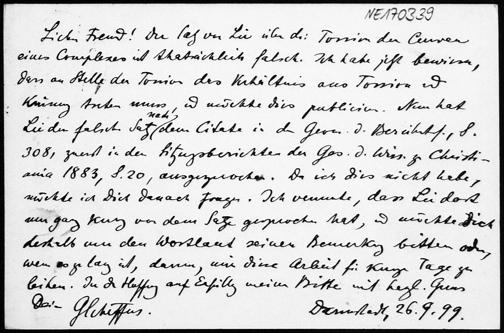 NE170339
Lieber Freund! Der Satz von Lie über die Torsion der Curven
eines Complexes ist thatsächlich falsch. Ich habe jetzt bewiesen,
dass an Stelle der Torsion das Verhältnis aus Torsion und
Krümmung treten muss, und möchte dies publicieren. Nun hat
Lie den falschen Satz, nach dem Citate in der Geom. d. Berührtrf., S.
308, zuerst in den Sitzungsberichten der Ges. d. Wiss. zu Christi-
ania 1883, S. 20, ausgesprochen. Da ich dies nicht habe,
möchte ich Dich danach fragen. Ich vermute, dass Lie dort
nur ganz kurz von dem Satze gesprochen hat, und möchte Dich
deshalb um den Wortlaut seiner Bemerkung bitten oder,
wenn es zu lang ist, darum, mir diese Arbeit für kurze Tage zu
leihen. In der Hoffnung auf Erfüllung meiner Bitte mit herzl. Gruss
Dein GScheffers. Darmstadt, 26.9.99.